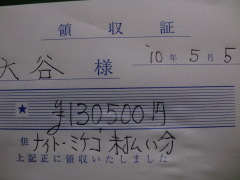 領収証
大谷 様 '10年5月5
★ ¥130500円
但 ナイト・ミケコ 未払い分
上記正に領収いたしました